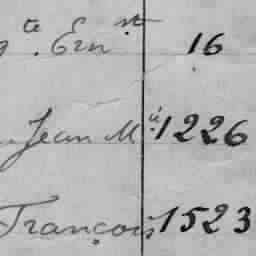 te. Ern st 16
Jean M 1226
François 1523